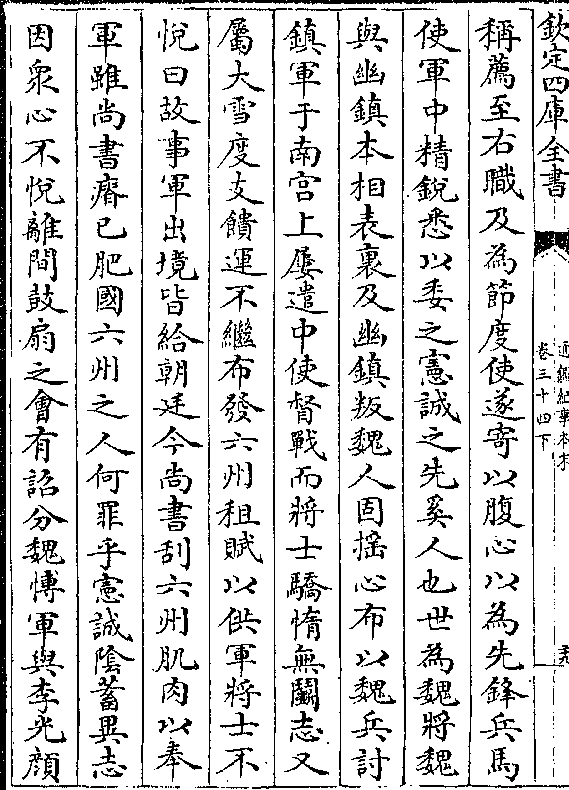 欽定四庫全書
通鑑紀事本末
卷三十四下
稱薦至右職及為節度使遂寄以腹心以為先鋒兵馬
使軍中精銳悉以委之憲誠之先奚人也世為魏將魏
與幽鎮本相表裏及幽鎮叛魏人固揺心布以魏兵討
鎮軍于南宫上屢遣中使督戰而將士驕惰無鬭志又
屬大雪度支饋運不繼布發六州租賦以供軍將士不
悅曰故事軍出境皆給朝廷今尚書刮六州肌肉以奉
軍雖尚書瘠己肥國六州之人何罪乎憲誠陰蓄異志
因衆心不悅離間鼓扇之會有詔分魏愽軍與李光顔